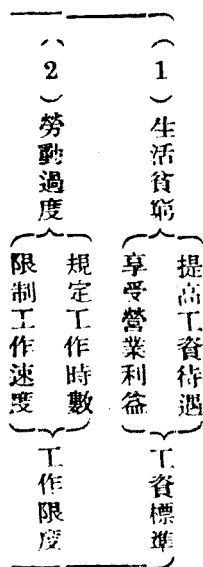 （1）生活貧窮
提高工資待遇
享受營業利益
工資標準
（2）勞動過度
規定工作時數
限制工作速度
工作限度